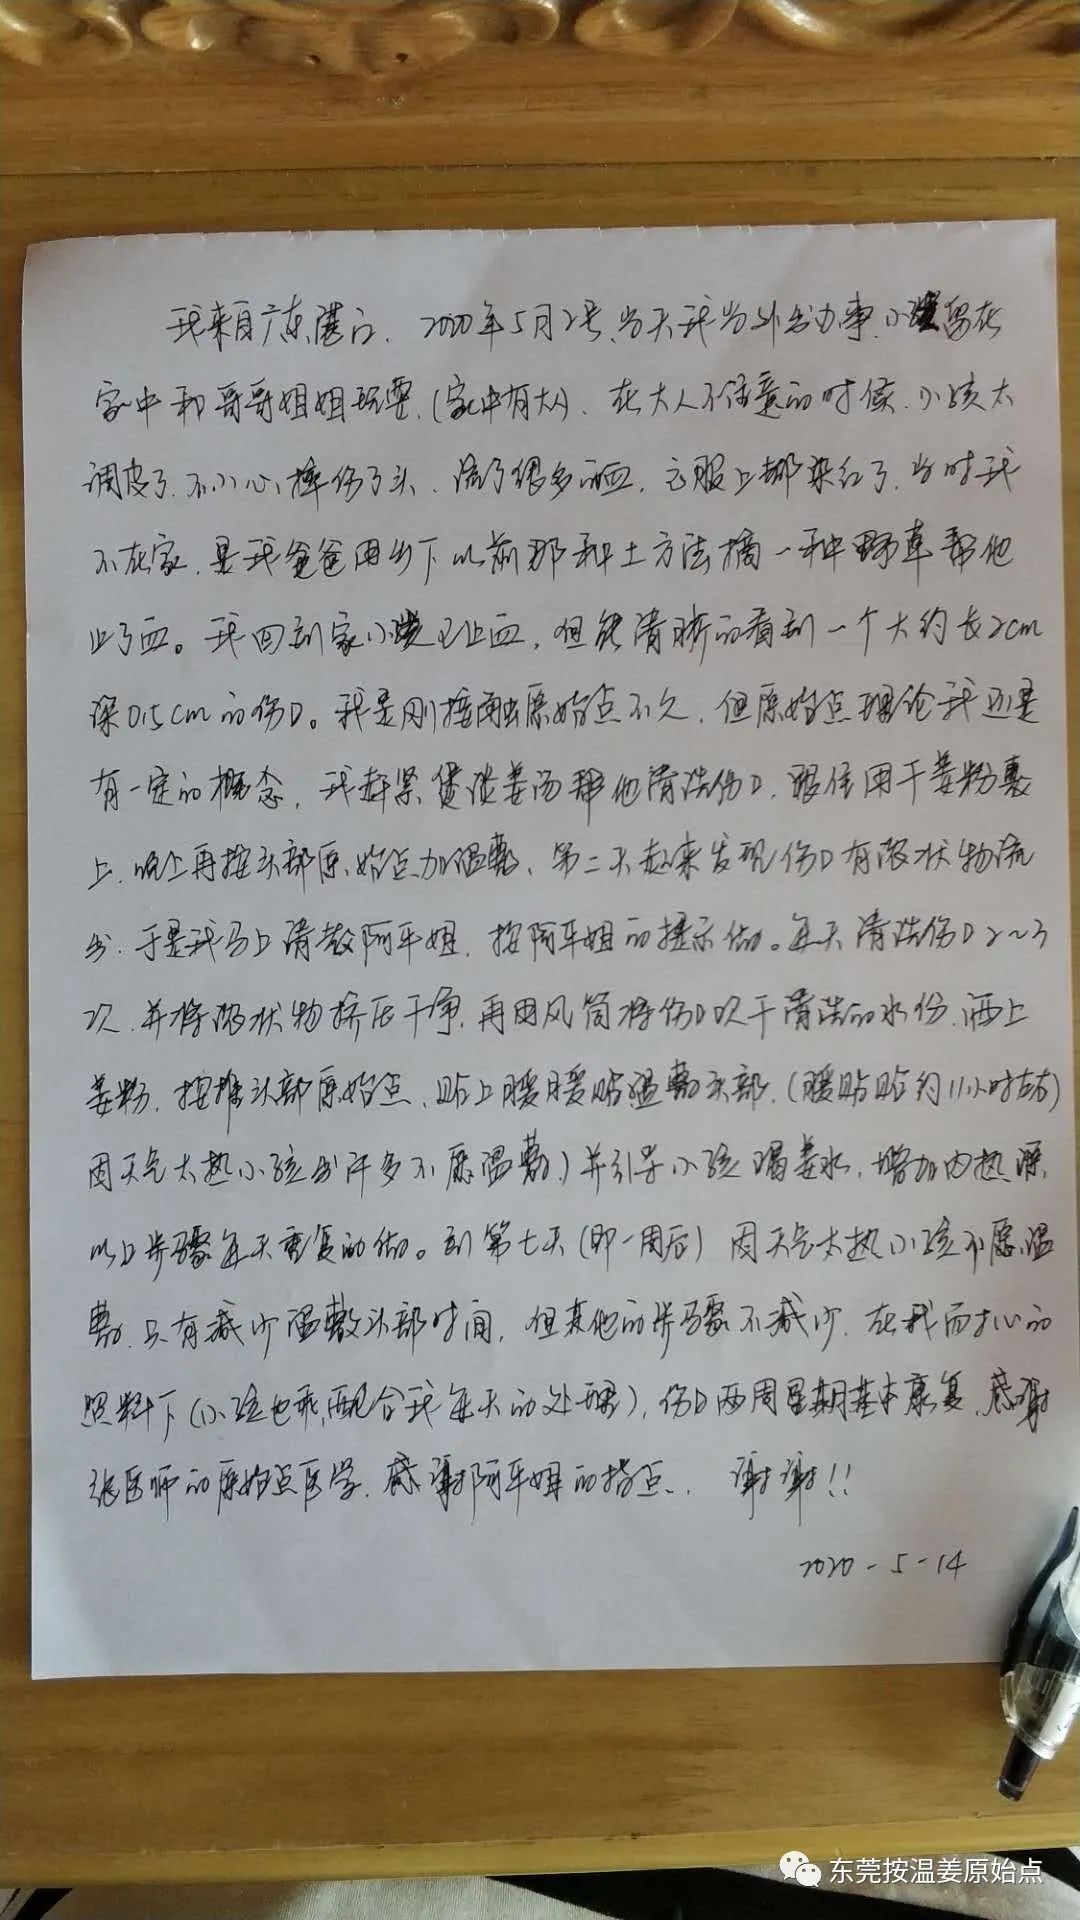 我来自广东湛江. 2020年5月2号,当天我出外办事.小孩留在
家中和哥哥姐姐玩耍,(家中有大人). 在大人不注意的时候.小孩太
调皮了.不小心摔伤了头.流了很多的血.衣服上都染红了.当时我
不在家.是我爸爸用乡下以前那种土方法摘一种野草帮他
止了血。我回到家小孩已止血,但能清晰的看到一个大约长2cm
深0.5cm的伤口。我是刚接触原始点不久.但原始点理论我还是
有一定的概念,我赶紧煲淡姜汤帮他清洗伤口.跟住用干姜粉裹
上.晚上再按头部原始点加温敷、第二天起来发现伤口有脓状物流
出.于是我马上请教阿平姐.按阿平姐的提示做。每天清洗伤口2~3
次.并将脓状物挤压干净.再用风筒将伤口吹干清洗的水份.洒上
姜粉.按推头部原始点、贴上暖暖贴温敷头部.(暖贴贴约11小时左右)
因天气太热小孩出汗多不愿温敷)并引导小孩喝姜水.增加内热源.
以上步骤每天重复的做。到第七天(即一周后)因天气太热小孩不愿温
敷.只有减少温敷头部时间,但其他的步骤不减少.在我而扎心的
照料下(小孩也乖,配合我每天的处理),伤口两周星期基本康复.感谢
张医师的原始点医学.感谢阿平姐的指点. 谢谢!!
2020-5-14
东莞按温姜原始点